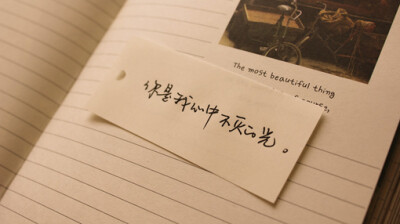 The most beautiful thing
你是我心中不灭的光。